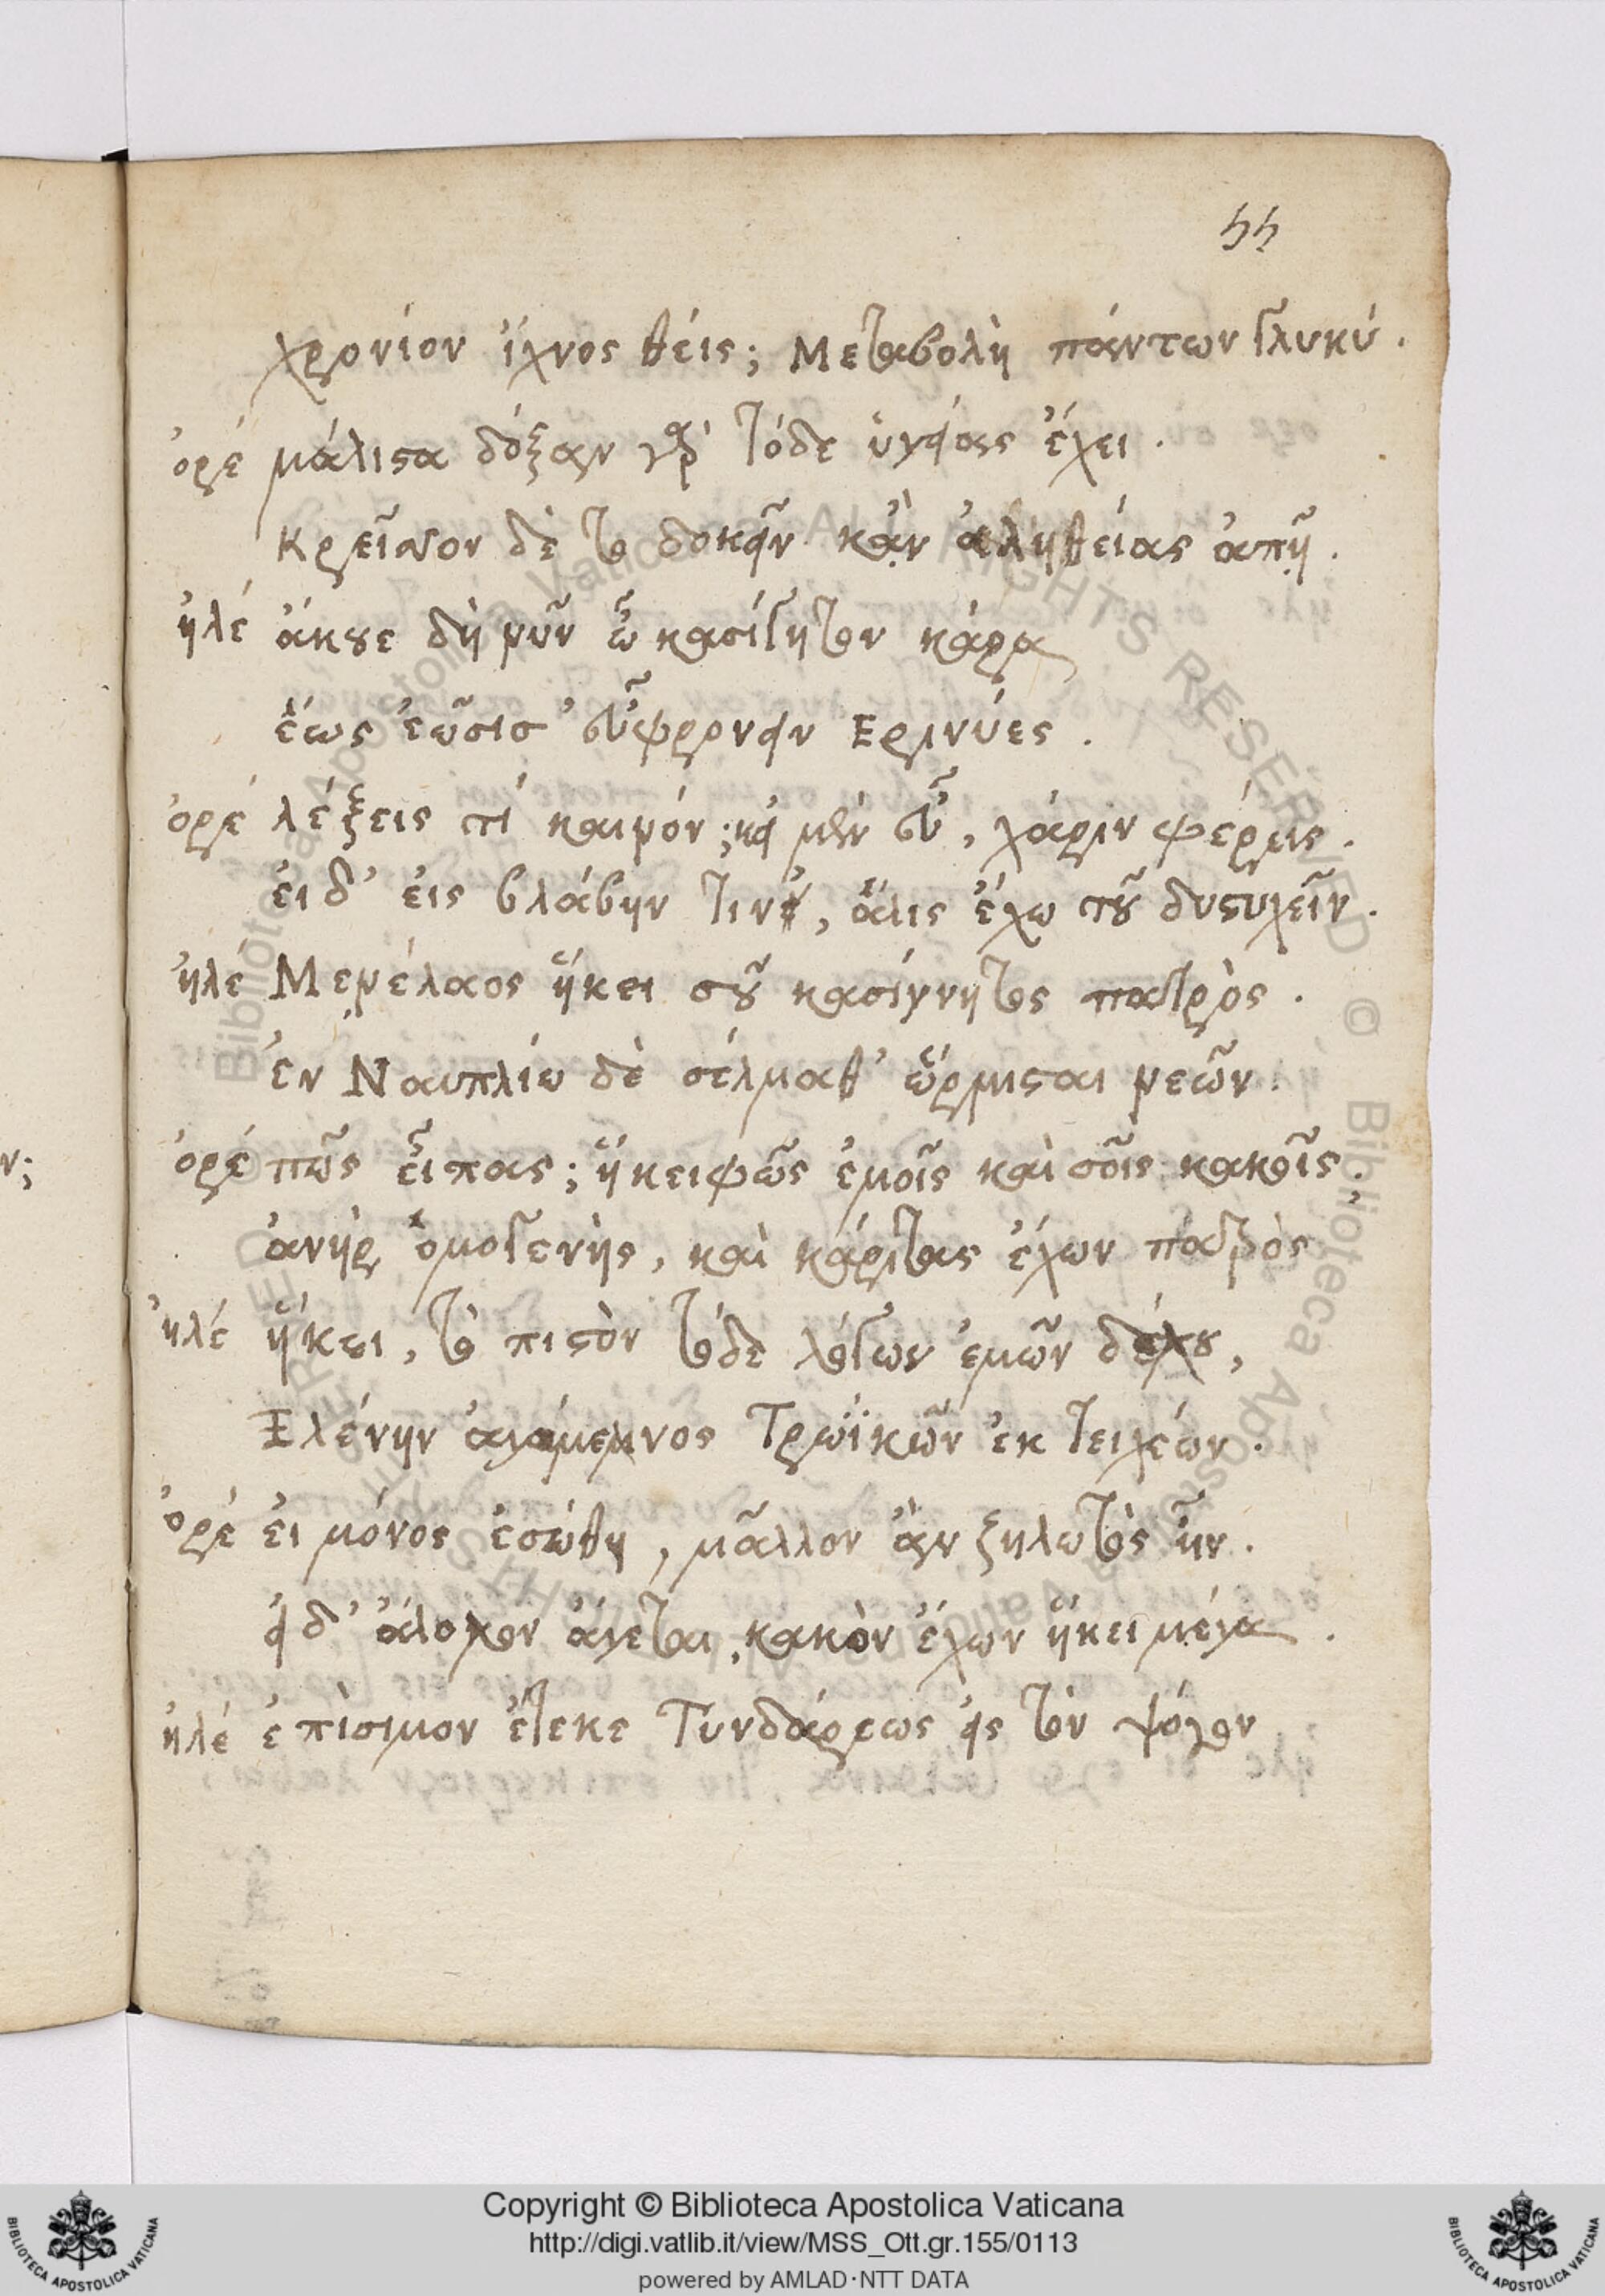 55
χρονίον ἴχνος θείς; Μεταβολὴ πάντων γλυκύ.
ὀρέ μάλιστα δόξαν γὰρ τόδε ὑγείας ἔχει.
Κρεῖσσον δὲ τὸ δοκεῖν κἂν ἀληθείας ἀπῇ.
ἠλέ ἄκουε δὴ νῦν ὦ κασίγνητον κάρα
ἕως ἐῶσισ' εὖ φρονεῖν Ερινύες.
ὀρέ λέξεις τί καινόν; κεἰ μὲν εὖ, χάριν φέρεις.
εἰ δ' εἰς βλάβην τιν', ἅλις ἔχω τοῦ δυστυχεῖν.
ἠλέ Μενέλαος ἥκει σοῦ κασίγνητος πατρὸς.
ἐν Ναυπλίω δὲ σέλμαθ' ὥρμισται νεῶν.
ν;
ὀρέ πῶς εἶπας; ἥκει φῶς ἐμοῖς καὶ σοῖς κακοῖς.
ἀνὴρ ὁμογενὴς, καὶ χάριτας ἔχων πατρὸς
ἠλέ ἥκει, τὸ πιστὸν τόδε λόγων ἐμῶν δέχου,
Ελένην ἀγόμενος Τρωϊκῶν ἐκ τειχέων.
ὀρέ εἰ μόνος ἐσώθη, μᾶλλον ἂν ζηλωτὸς ἦν.
εἰ δ' ἄλοχον ἄγεται, κακὸν ἔχων ἥκει μέγα.
ἠλέ ἐπίσιμον ἔτεκε Τυνδάρεως εἰς τὸν ψόγον
Biblioteca Apostolica Vaticana ALL RIGHTS RESERVED ©
Copyright © Biblioteca Apostolica Vaticana
http://digi.vatlib.it/view/MSS_Ott.gr.155/0113
powered by AMLAD·NTT DATA
BIBLIOTECA APOSTOLICA VATICANA
BIBLIOTECA APOSTOLICA VATICANA